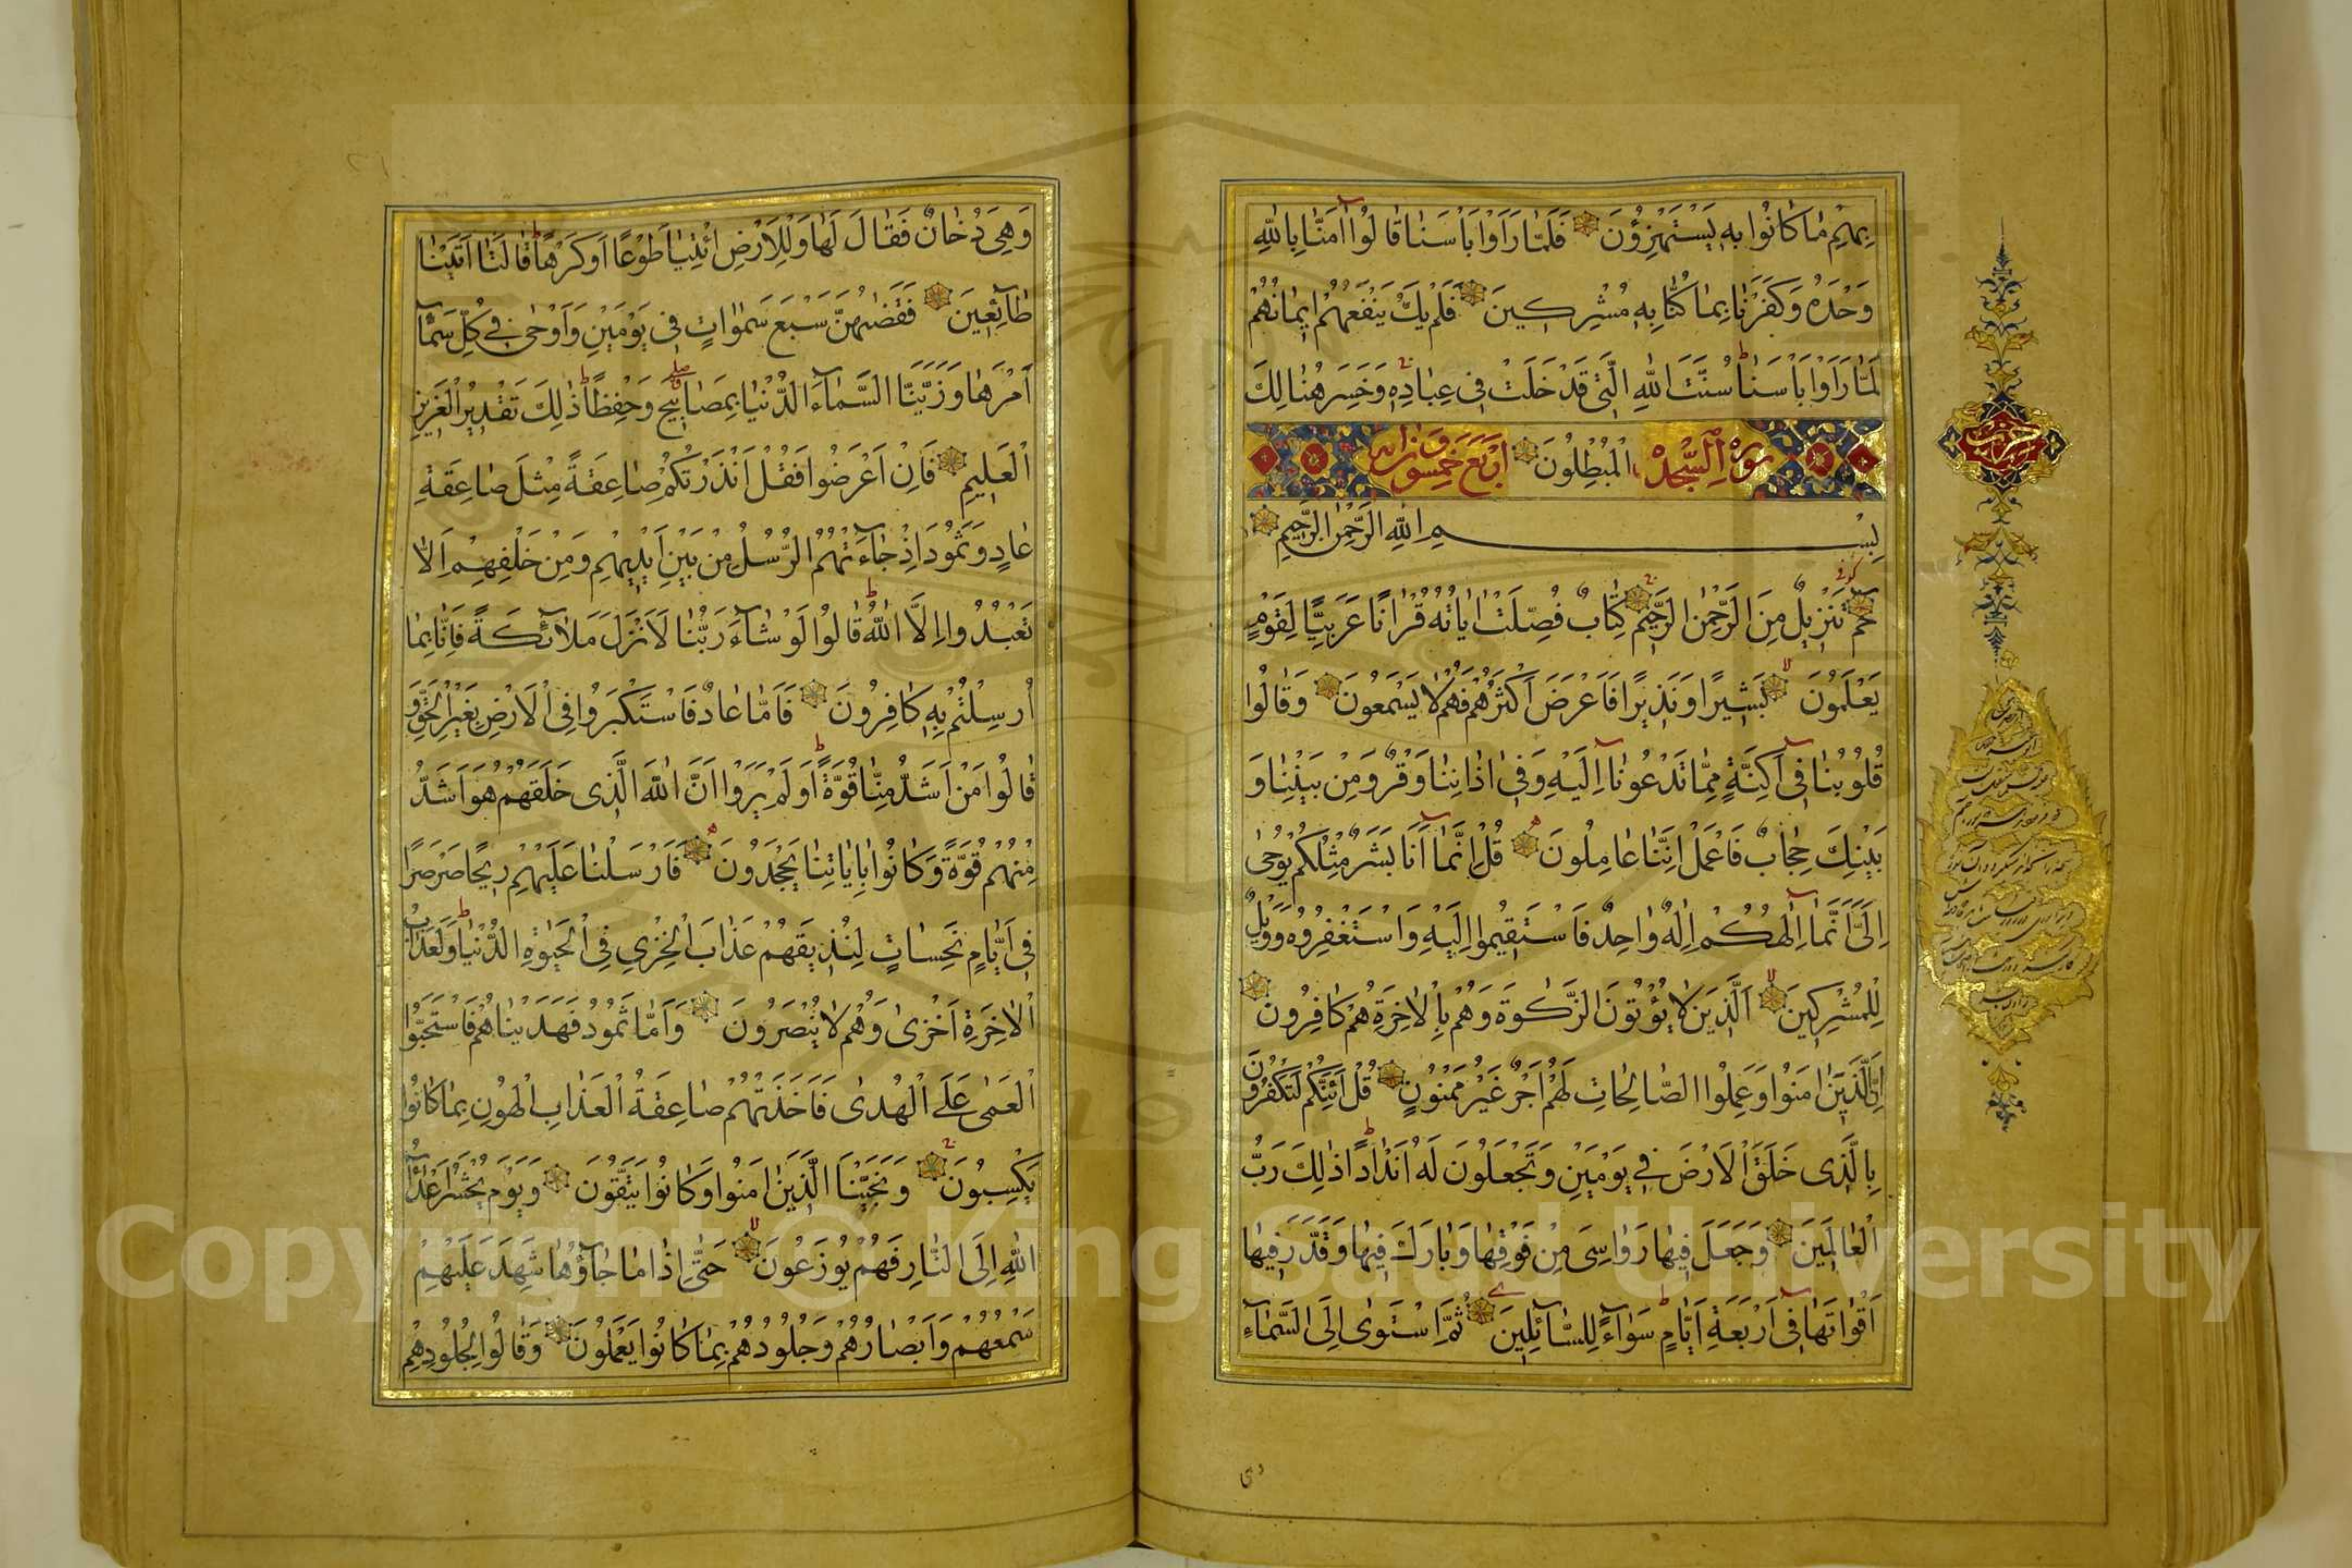 بِهِمْ مَا كَانُوا بِهِ يَسْتَهْزِؤُنَ فَلَمَّا رَاَوْا بَأْسَنَا قَالُوا اٰمَنَّا بِاللّٰهِ
وَحْدَهُ وَكَفَرْنَا بِمَا كُنَّا بِهِ مُشْرِكِينَ فَلَمْ يَكُ يَنْفَعُهُمْ اِيمَانُهُمْ
لَمَّا رَاَوْا بَأْسَنَا سُنَّتَ اللّٰهِ الَّتِي قَدْ خَلَتْ فِي عِبَادِهِ وَخَسِرَ هُنَالِكَ
سورة السجدة الْمُبْطِلُونَ اربع وخمسون اية
بِسْمِ اللّٰهِ الرَّحْمٰنِ الرَّحِيمِ
كوفي
حٰمٓ تَنْزِيلٌ مِنَ الرَّحْمٰنِ الرَّحِيمِ كِتَابٌ فُصِّلَتْ اٰيَاتُهُ قُرْاٰنًا عَرَبِيًّا لِقَوْمٍ
يَعْلَمُونَ بَشِيرًا وَنَذِيرًا فَاَعْرَضَ اَكْثَرُهُمْ فَهُمْ لَا يَسْمَعُونَ وَقَالُوا
قُلُوبُنَا فِي اَكِنَّةٍ مِمَّا تَدْعُونَا اِلَيْهِ وَفِي اٰذَانِنَا وَقْرٌ وَمِنْ بَيْنِنَا وَ
بَيْنِكَ حِجَابٌ فَاعْمَلْ اِنَّنَا عَامِلُونَ قُلْ اِنَّمَا اَنَا بَشَرٌ مِثْلُكُمْ يُوحٰى
اِلَيَّ اَنَّمَا اِلٰهُكُمْ اِلٰهٌ وَاحِدٌ فَاسْتَقِيمُوا اِلَيْهِ وَاسْتَغْفِرُوهُ وَوَيْلٌ
لِلْمُشْرِكِينَ اَلَّذِينَ لَا يُؤْتُونَ الزَّكٰوةَ وَهُمْ بِالْاٰخِرَةِ هُمْ كَافِرُونَ
اِنَّ الَّذِينَ اٰمَنُوا وَعَمِلُوا الصَّالِحَاتِ لَهُمْ اَجْرٌ غَيْرُ مَمْنُونٍ قُلْ اَئِنَّكُمْ لَتَكْفُرُونَ
بِالَّذِي خَلَقَ الْاَرْضَ فِي يَوْمَيْنِ وَتَجْعَلُونَ لَهُ اَنْدَادًا ذٰلِكَ رَبُّ
الْعَالَمِينَ وَجَعَلَ فِيهَا رَوَاسِيَ مِنْ فَوْقِهَا وَبَارَكَ فِيهَا وَقَدَّرَ فِيهَا
اَقْوَاتَهَا فِي اَرْبَعَةِ اَيَّامٍ سَوَاءً لِلسَّائِلِينَ ثُمَّ اسْتَوٰى اِلَى السَّمَاءِ
وَهِيَ دُخَانٌ فَقَالَ لَهَا وَلِلْاَرْضِ ائْتِيَا طَوْعًا اَوْ كَرْهًا قَالَتَا اَتَيْنَا
طَائِعِينَ فَقَضٰيهُنَّ سَبْعَ سَمٰوَاتٍ فِي يَوْمَيْنِ وَاَوْحٰى فِي كُلِّ سَمَاءٍ
اَمْرَهَا وَزَيَّنَّا السَّمَاءَ الدُّنْيَا بِمَصَابِيحَ وَحِفْظًا ذٰلِكَ تَقْدِيرُ الْعَزِيزِ
الْعَلِيمِ فَاِنْ اَعْرَضُوا فَقُلْ اَنْذَرْتُكُمْ صَاعِقَةً مِثْلَ صَاعِقَةِ
عَادٍ وَثَمُودَ اِذْ جَاءَتْهُمُ الرُّسُلُ مِنْ بَيْنِ اَيْدِيهِمْ وَمِنْ خَلْفِهِمْ اَلَّا
تَعْبُدُوا اِلَّا اللّٰهَ قَالُوا لَوْ شَاءَ رَبُّنَا لَاَنْزَلَ مَلَائِكَةً فَاِنَّا بِمَا
اُرْسِلْتُمْ بِهِ كَافِرُونَ فَاَمَّا عَادٌ فَاسْتَكْبَرُوا فِي الْاَرْضِ بِغَيْرِ الْحَقِّ وَ
قَالُوا مَنْ اَشَدُّ مِنَّا قُوَّةً اَوَلَمْ يَرَوْا اَنَّ اللّٰهَ الَّذِي خَلَقَهُمْ هُوَ اَشَدُّ
مِنْهُمْ قُوَّةً وَكَانُوا بِاٰيَاتِنَا يَجْحَدُونَ فَاَرْسَلْنَا عَلَيْهِمْ رِيحًا صَرْصَرًا
فِي اَيَّامٍ نَحِسَاتٍ لِنُذِيقَهُمْ عَذَابَ الْخِزْيِ فِي الْحَيٰوةِ الدُّنْيَا وَلَعَذَابُ
الْاٰخِرَةِ اَخْزٰى وَهُمْ لَا يُنْصَرُونَ وَاَمَّا ثَمُودُ فَهَدَيْنَاهُمْ فَاسْتَحَبُّوا
الْعَمٰى عَلَى الْهُدٰى فَاَخَذَتْهُمْ صَاعِقَةُ الْعَذَابِ الْهُونِ بِمَا كَانُوا
يَكْسِبُونَ وَنَجَّيْنَا الَّذِينَ اٰمَنُوا وَكَانُوا يَتَّقُونَ وَيَوْمَ يُحْشَرُ اَعْدَاءُ
اللّٰهِ اِلَى النَّارِ فَهُمْ يُوزَعُونَ حَتّٰى اِذَا مَا جَاؤُهَا شَهِدَ عَلَيْهِمْ
سَمْعُهُمْ وَاَبْصَارُهُمْ وَجُلُودُهُمْ بِمَا كَانُوا يَعْمَلُونَ وَقَالُوا لِجُلُودِهِمْ
Copyright © King Saud University